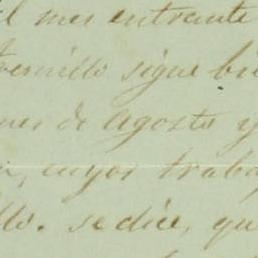 el mes entrante
sigue bi
mes de Agosto y
, cuyos traba
llo. se dice, qu